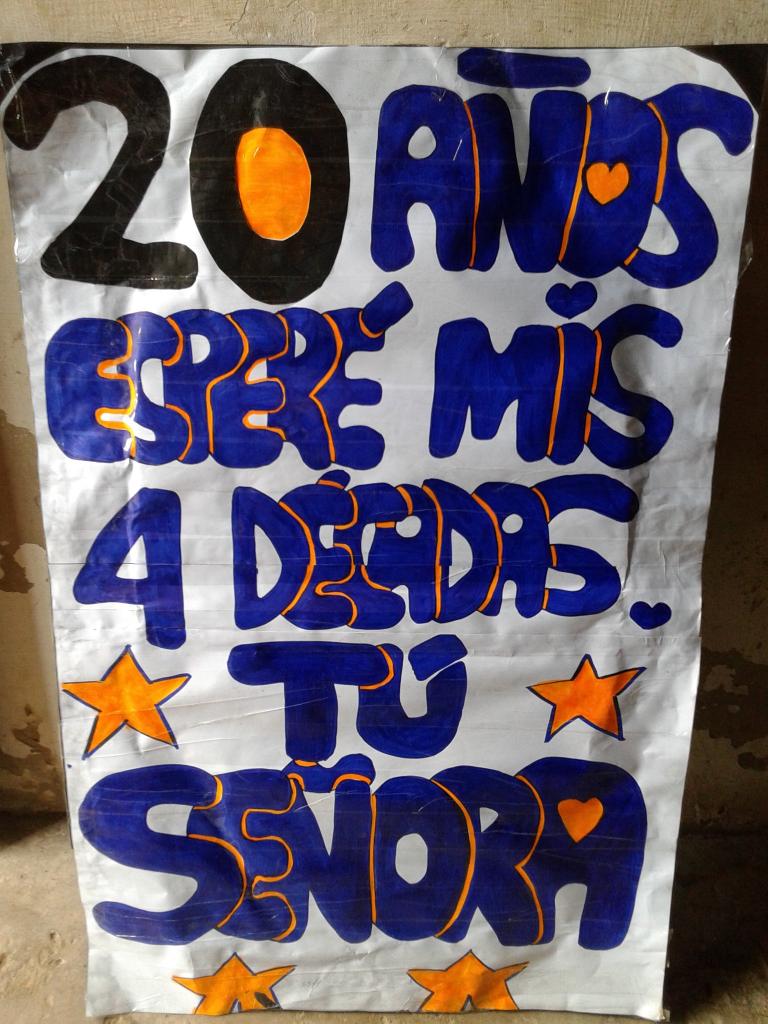 20 AÑOS
ESPERÉ MIS
4 DÉCADAS.
TÚ
SEÑORA